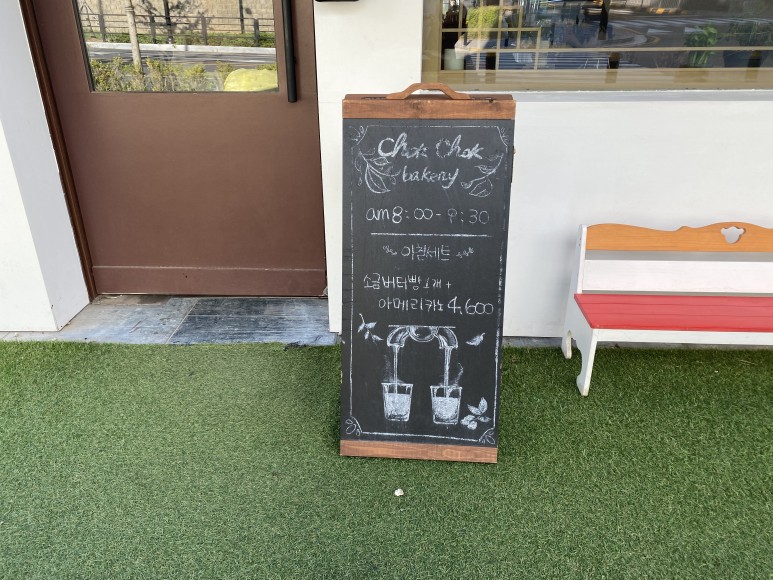 Chok Chok
bakery
am 8:00 - 9:30
아침세트
소금버터빵 1개 +
아메리카노 4,600